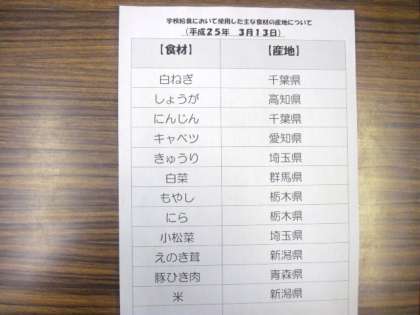 学校給食において使用した主な食材の産地について
（平成２５年　３月１３日）
【食材】　【産地】
白ねぎ　千葉県
しょうが　高知県
にんじん　千葉県
キャベツ　愛知県
きゅうり　埼玉県
白菜　群馬県
もやし　栃木県
にら　栃木県
小松菜　埼玉県
えのき茸　新潟県
豚ひき肉　青森県
米　新潟県